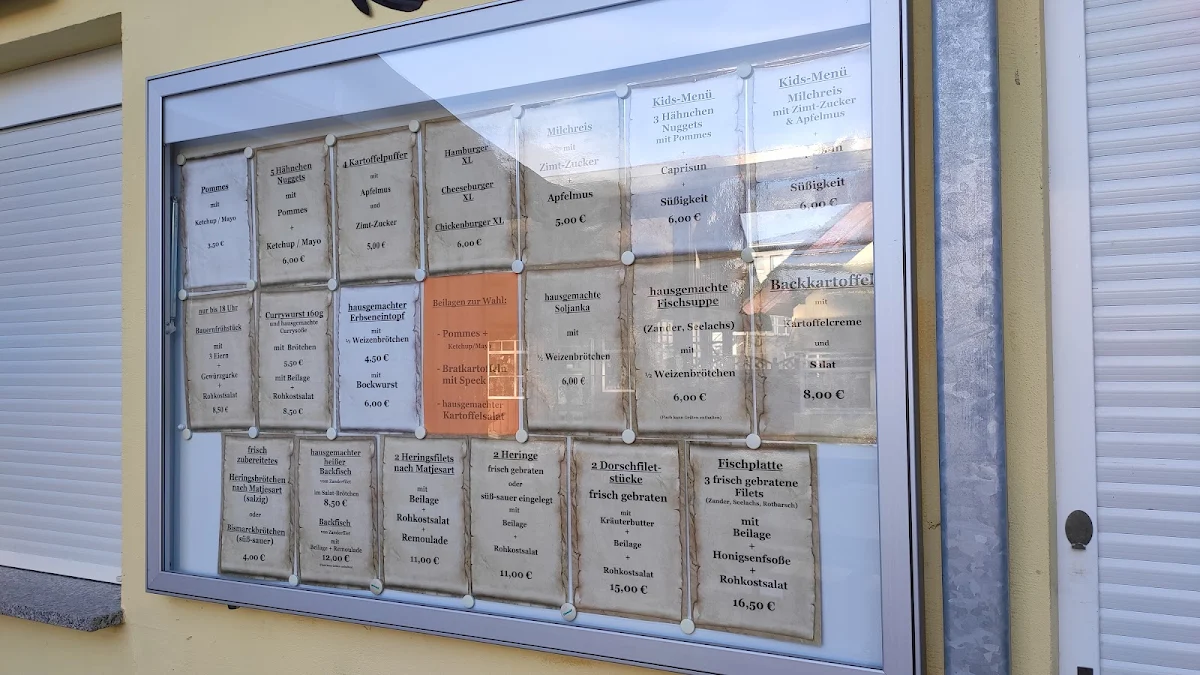 Pommes
mit
Ketchup / Mayo
3,50 €
5 Hähnchen
Nuggets
mit
Pommes
+
Ketchup / Mayo
6,00 €
4 Kartoffelpuffer
mit
Apfelmus
und
Zimt-Zucker
5,00 €
Hamburger
XL
Cheeseburger
XL
Chickenburger XL
6,00 €
Milchreis
mit
Zimt-Zucker
Apfelmus
5,00 €
Kids-Menü
3 Hähnchen
Nuggets
mit Pommes
Caprisun
Süßigkeit
6,00 €
Kids-Menü
Milchreis
mit Zimt-Zucker
& Apfelmus
Süßigkeit
6,00 €
nur bis 18 Uhr
Bauernfrühstück
mit
3 Eiern
+
Gewürzgurke
+
Rohkostsalat
8,50 €
Currywurst 160g
und hausgemachte
Currysoße
mit Brötchen
5,50 €
mit Beilage
+
Rohkostsalat
8,50 €
hausgemachter
Erbseneintopf
mit
½ Weizenbrötchen
4,50 €
mit
Bockwurst
6,00 €
Beilagen zur Wahl:
- Pommes +
Ketchup/Mayo
- Bratkartoffeln
mit Speck
- hausgemachter
Kartoffelsalat
hausgemachte
Soljanka
mit
½ Weizenbrötchen
6,00 €
hausgemachte
Fischsuppe
(Zander, Seelachs)
mit
½ Weizenbrötchen
6,00 €
Backkartoffel
mit
Kartoffelcreme
und
Salat
8,00 €
frisch
zubereitetes
Heringsbrötchen
nach Matjesart
(salzig)
oder
Bismarckbrötchen
(süß-sauer)
4,00 €
hausgemachter
heißer
Backfisch
vom Zanderfilet
im Salat-Brötchen
8,50 €
Backfisch
vom Zanderfilet
mit
Beilage + Remoulade
12,00 €
2 Heringsfilets
nach Matjesart
mit
Beilage
+
Rohkostsalat
+
Remoulade
11,00 €
2 Heringe
frisch gebraten
oder
süß-sauer eingelegt
mit
Beilage
+
Rohkostsalat
11,00 €
2 Dorschfilet-
stücke
frisch gebraten
mit
Kräuterbutter
+
Beilage
+
Rohkostsalat
15,00 €
Fischplatte
3 frisch gebratene
Filets
(Zander, Seelachs, Rotbarsch)
mit
Beilage
+
Honigsenfsoße
+
Rohkostsalat
16,50 €